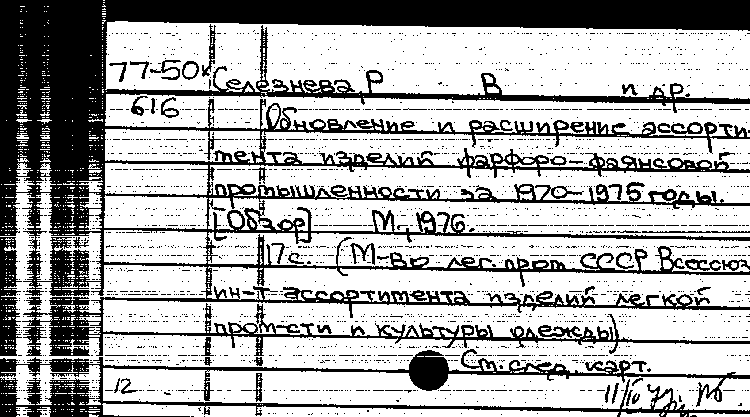 77-50к Селезнева, Р В и др.
616 Обновление и расширение ассорти-
мента изделий фарфоро-фаянсовой
промышленности за 1970-1975 годы.
[Обзор] М., 1976.
17 с. (М-во лег. пром. СССР Всесоюз
ин-т ассортимента изделий легкой
пром-сти и культуры одежды)
См. след. карт.
12